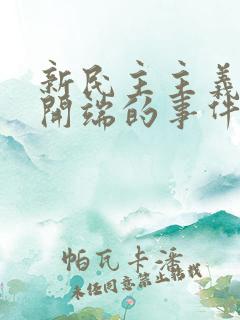 新民主主義
開端的事件
帕瓦卡潘
未經同意禁止轉載